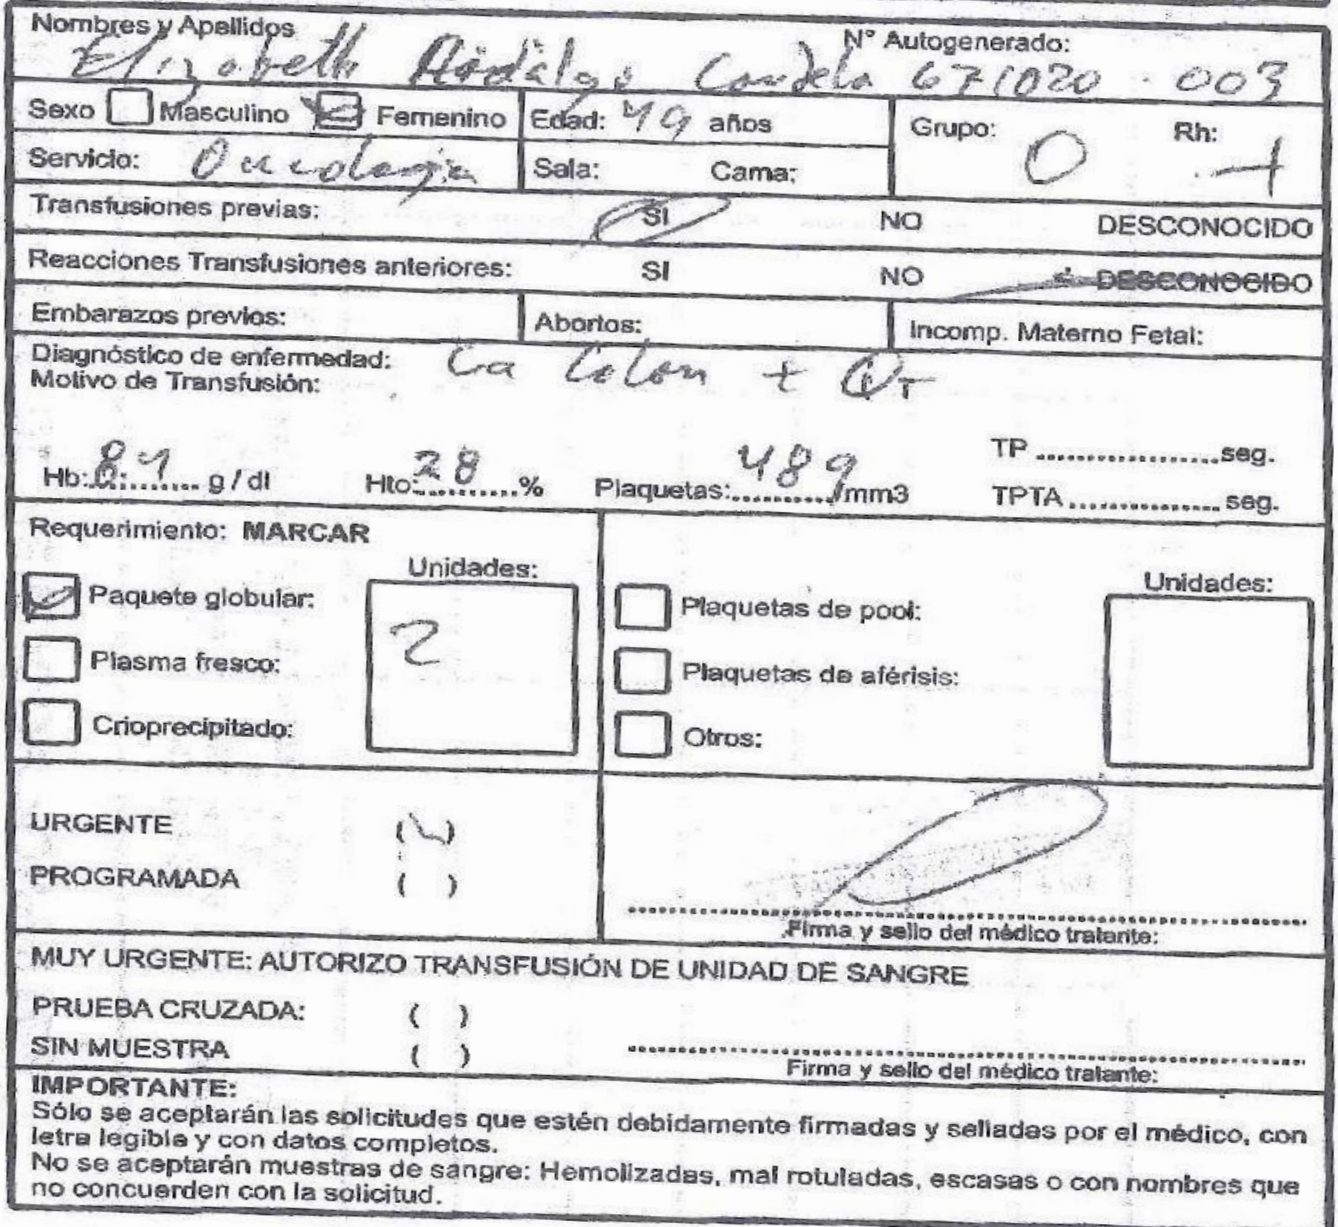 Nombres y Apellidos
N° Autogenerado:
Elizabeth Hidalgo Candela 671020 - 003
Sexo Masculino Femenino Edad: 49 años Grupo: O Rh: +
Servicio: Oncologia Sala: Cama:
Transfusiones previas: SI NO DESCONOCIDO
Reacciones Transfusiones anteriores: SI NO DESCONOCIDO
Embarazos previos: Abortos: Incomp. Materno Fetal:
Diagnóstico de enfermedad: Ca Colon + QT
Motivo de Transfusión:
Hb: g / dl Hto: 28 % Plaquetas: 489 /mm3 TP seg.
TPTA seg.
Requerimiento: MARCAR
Unidades: Unidades:
Paquete globular: 2 Plaquetas de pool:
Plasma fresco: Plaquetas de aférisis:
Crioprecipitado: Otros:
URGENTE ( )
PROGRAMADA ( )
Firma y sello del médico tratante:
MUY URGENTE: AUTORIZO TRANSFUSIÓN DE UNIDAD DE SANGRE
PRUEBA CRUZADA: ( )
SIN MUESTRA ( )
Firma y sello del médico tratante:
IMPORTANTE:
Sólo se aceptarán las solicitudes que estén debidamente firmadas y selladas por el médico, con
letra legible y con datos completos.
No se aceptarán muestras de sangre: Hemolizadas, mal rotuladas, escasas o con nombres que
no concuerden con la solicitud.